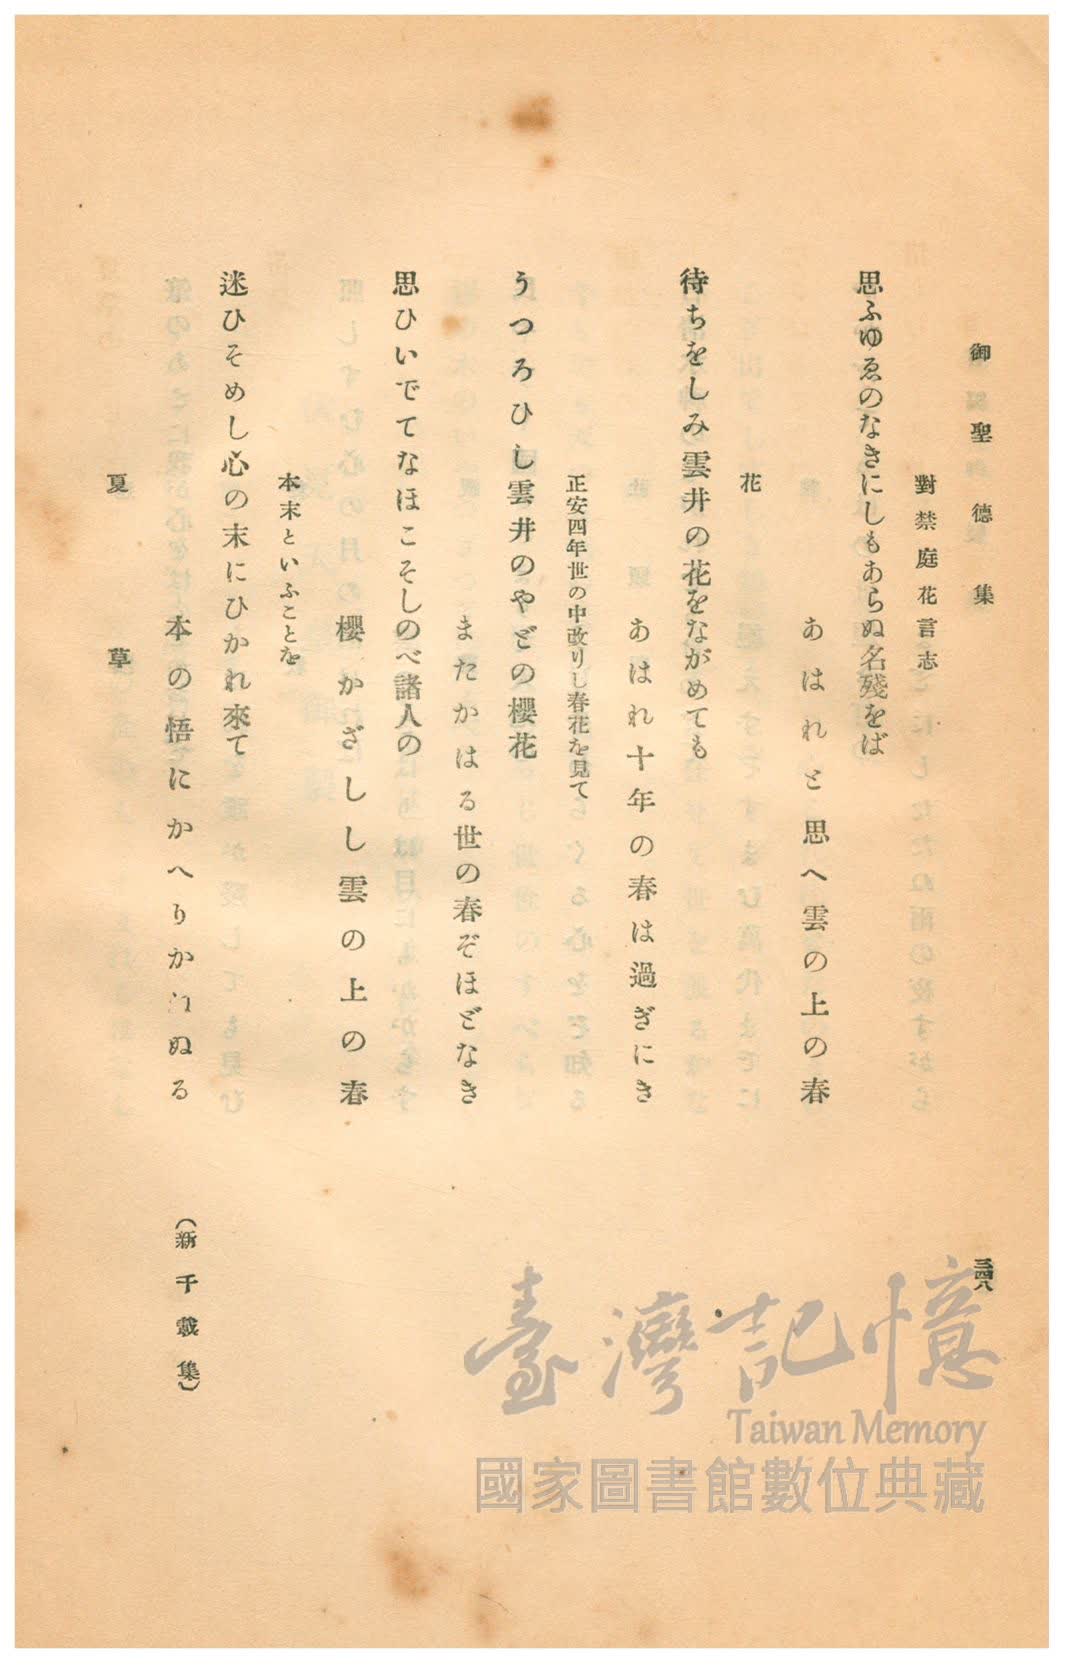 御聖德集
三四八
對禁庭花言志
思ふゆゑのなきにしもあらぬ名殘をば
あはれと思へ雲の上の春
花
待ちをしみ雲井の花をながめても
あはれ十年の春は過ぎにき
正安四年世の中改りし春花を見て
うつろひし雲井のやどの櫻花
またかはる世の春ぞほどなき
思ひいでてなほこそしのべ諸人の
櫻かざしし雲の上の春
本末といふことを
迷ひそめし心の末にひかれ來て
本の悟にかへりかねぬる
(新千載集)
夏草
臺灣記憶
Taiwan Memory
國家圖書館數位典藏